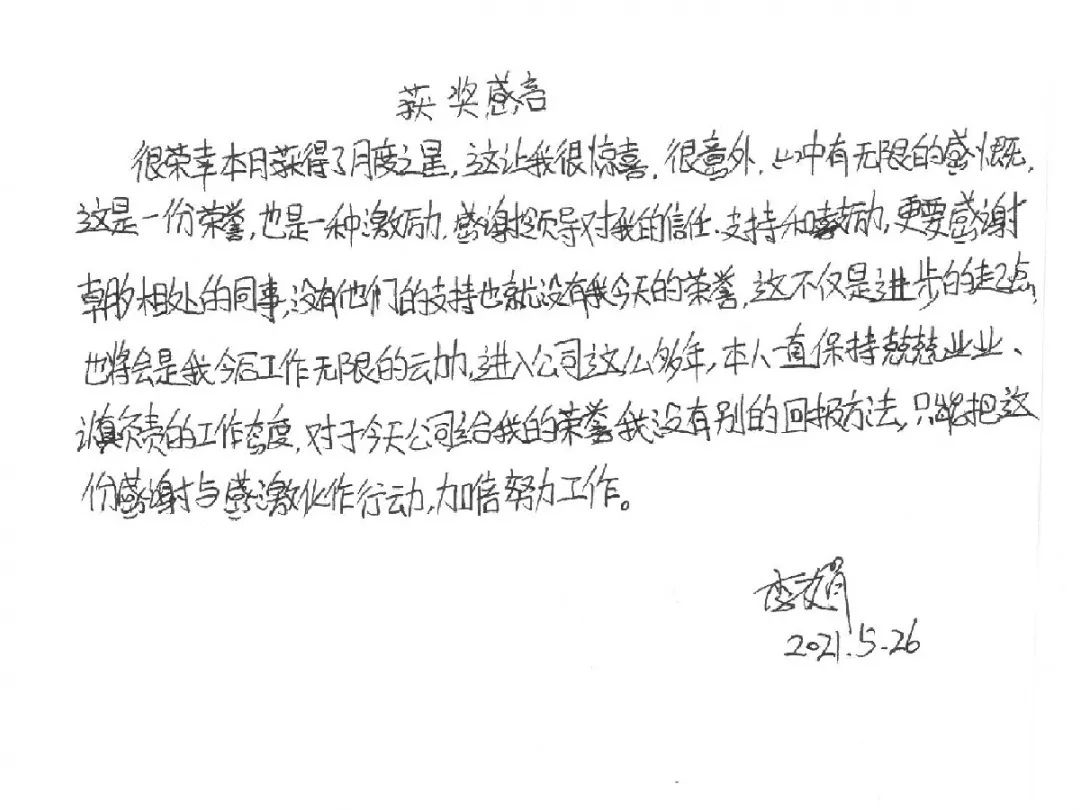 获奖感言
很荣幸本月获得了月度之星,这让我很惊喜.很意外.心中有无限的感慨.
这是一份荣誉,也是一种激励,感谢领导对我的信任.支持和鼓励,更要感谢
朝夕相处的同事,没有他们的支持也就没有我今天的荣誉,这不仅是进步的起点,
也将会是我今后工作无限的动力,进入公司这么多年,本人一直保持兢兢业业、
认真负责的工作态度,对于今天公司给我的荣誉我没有别的回报方法,只能把这
份感谢与感激化作行动,加倍努力工作。
李娟
2021.5.26